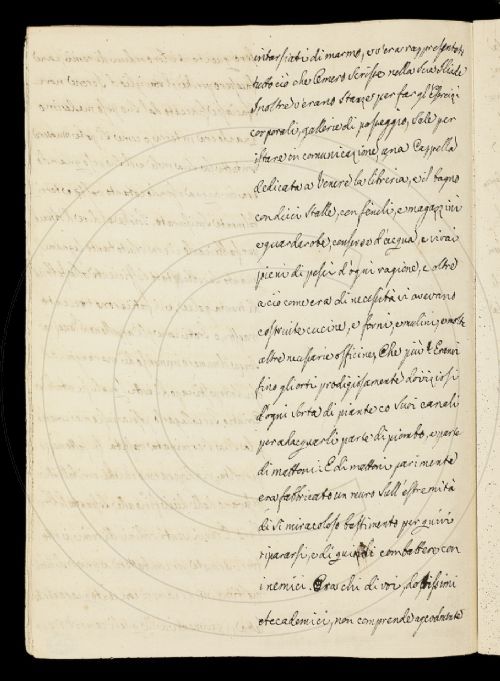 intarsiati di marmo, ov'era rappresentato
tutto ciò che Omero scrisse nella Sua Iliade
Inoltre v'erano Stanze per far gl'Esercizi
corporali, gallerie di passeggio, Sale per
istare in comunicazione, una Cappella
dedicata a Venere la libreria, e il bagno
con dieci Stalle, con fenili, e magazzini
e guardarobe, conserve d'acqua, e vivai
pieni di pesci d'ogni ragione, e oltre
a ciò come era di necessità vi avevano
costruite cucine, e forni, e mulini, e molte
altre necessarie officine, Che più? Eranvi
fino gli orti prodigiosamente doviziosi
d'ogni Sorta di piante co Suoi canali
per adacquarli parte di piombo, e parte
di mattoni: E di mattoni parimente
era fabbricato un muro Sull'estremità
di Si miracoloso bastimento per quivi
ripararsi, e di quindi combattere con
i nemici. Ora chi di voi, dottissimi
Accademici, non comprende agevolmente